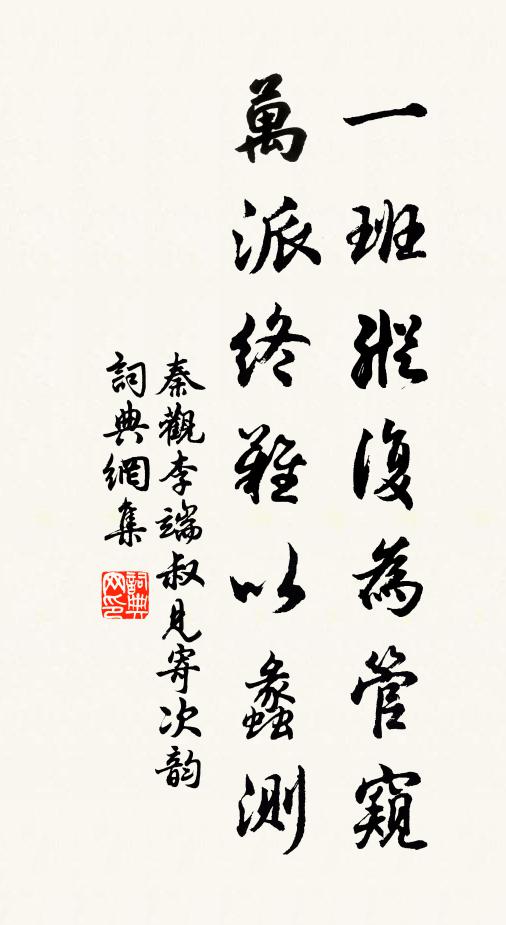 一班縱復為管窺
萬派終難以蠡測
秦觀李端叔見寄次韵
詞典網集
詞典網印